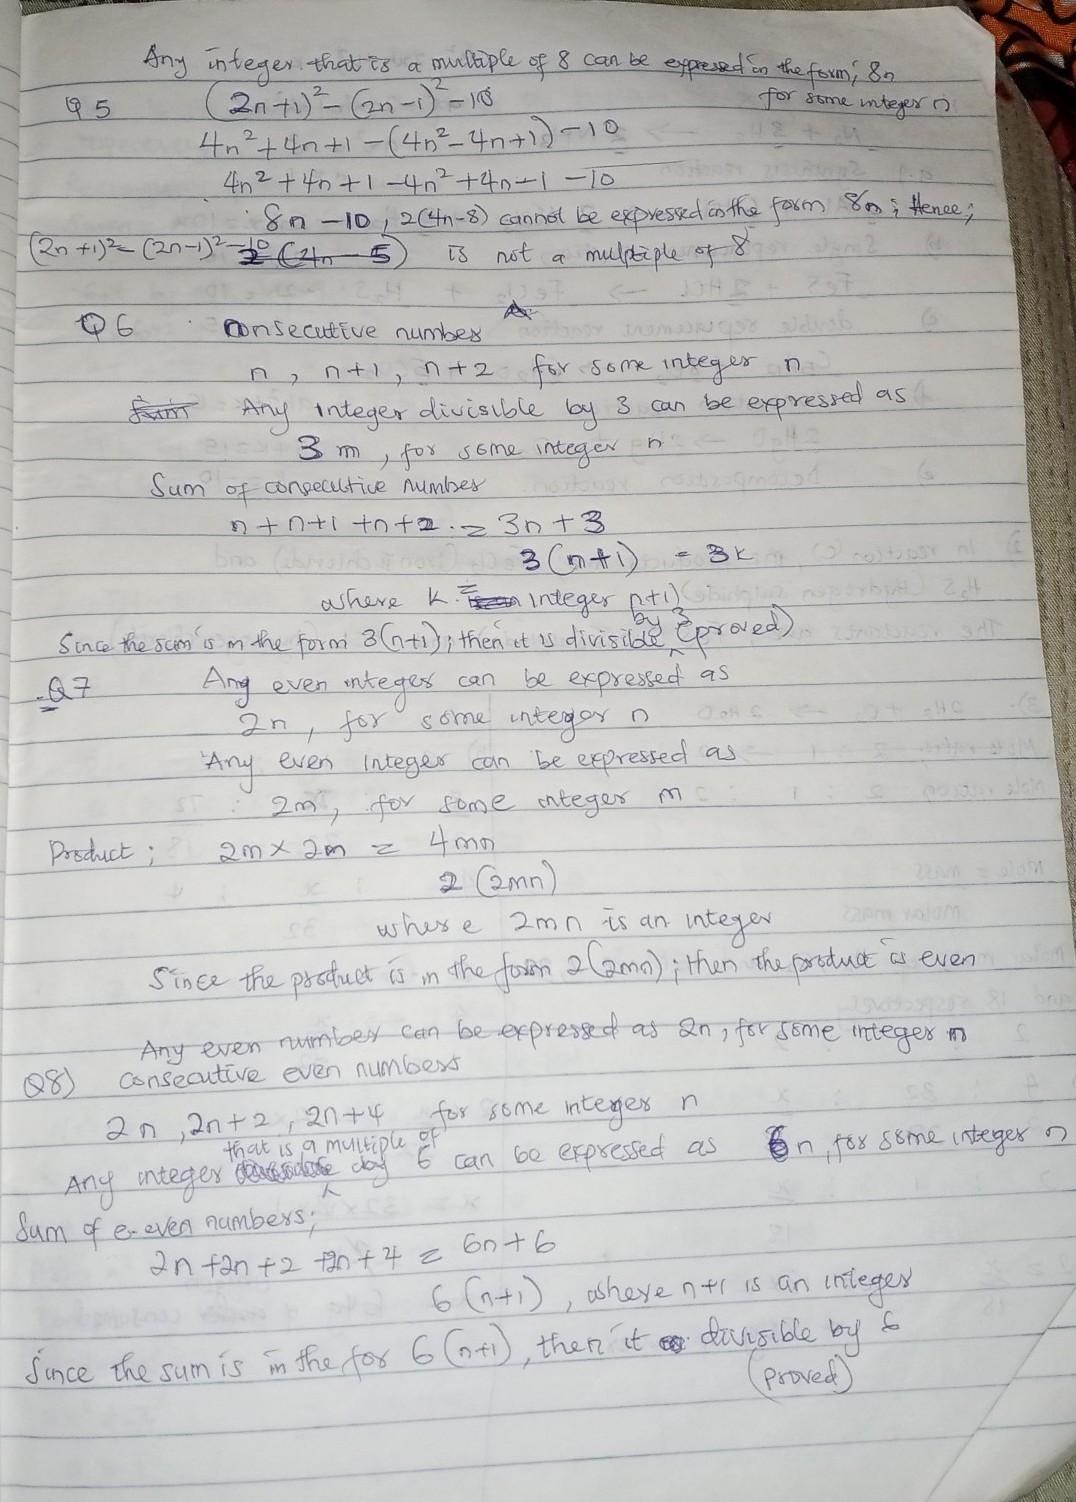 Any integer that is a multiple of 8 can be expressed in the form; 8n
for some integer n
Q5 (2n+1)² - (2n-1)² - 10
4n² + 4n + 1 - (4n² - 4n + 1) - 10
4n² + 4n + 1 - 4n² + 4n - 1 - 10
8n - 10, 2(4n-8) cannot be expressed in the form 8n; Hence;
(2n+1)² = (2n-1)² - 10 2(4n - 5) is not a multiple of 8
Q6 consecutive number
n, n+1, n+2 for some integer n
Any integer divisible by 3 can be expressed as
3m, for some integer n
Sum of consecutive number
n + n+1 + n+2 = 3n + 3
3(n+1) = 3k
where k = integer n+1)
Since the sum is in the form 3(n+1); then it is divisible by 3 (proved)
Q7 Any even integer can be expressed as
2n, for some integer n
Any even integer can be expressed as
2m, for some integer m
Product; 2m × 2m = 4mn
2(2mn)
where 2mn is an integer
Since the product is in the form 2(2mn); then the product is even
Any even number can be expressed as 2n, for some integer n
Q8) consecutive even numbers
2n, 2n+2, 2n+4 for some integer n
Any integer that is a multiple of 6 can be expressed as 6n, for some integer n
Sum of e-even numbers;
2n + 2n + 2 + 2n + 4 = 6n + 6
6(n+1), where n+1 is an integer
Since the sum is in the for 6(n+1), then it divisible by 6
(proved)